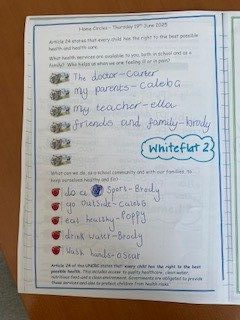 Home Circles - Thursday 19th June 2025
Article 24 states that every child has the right to the best possible
health and health care.
What health services are available to you, both in school and as a
family? Who helps us when we are feeling ill or in pain?
The doctor-Carter
my parents-CalebG
My teacher-ella
friends and family-brody
Whiteflat 2
What can we do, as a school community and with our families, to
keep ourselves healthy and fit?
do a Sport-Brody
go outSide-CalebG
eat healthy-Poppy
drink water-Brody
Wash hands-oscar
Article 24 of the UNCRC states that every child has the right to the best
possible health. This includes access to quality healthcare, clean water,
nutritious food and a clean environment. Governments are obligated to provide
these services and also to protect children from health risks.